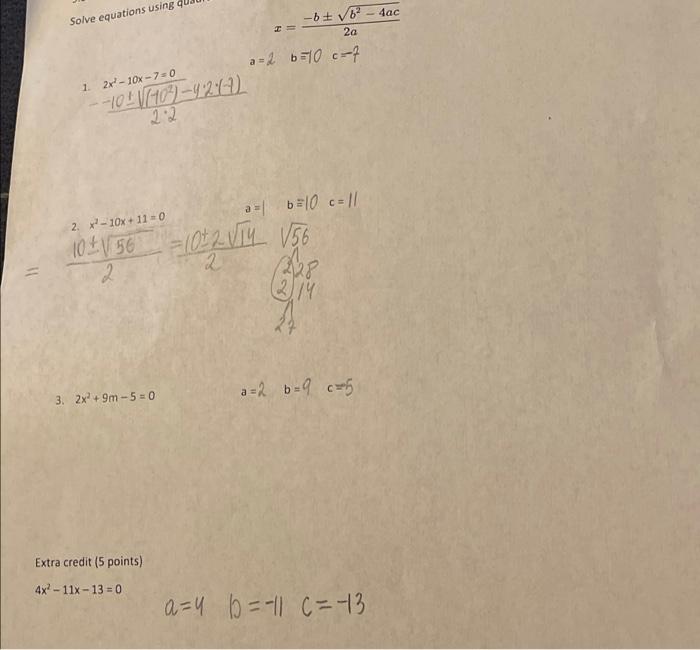 Solve equations using
x = \frac{-b \pm \sqrt{b^2 - 4ac}}{2a}
1. 2x² – 10x – 7 = 0 a = 2 b = -10 c = -7
\frac{--10 \pm \sqrt{(-10^2) - 4 \cdot 2 \cdot (-7)}}{2 \cdot 2}
2. x² – 10x + 11 = 0 a = 1 b = -10 c = 11
= \frac{10 \pm \sqrt{56}}{2} = \frac{10 \pm 2\sqrt{14}}{2} \sqrt{56}
2 28
2 14
2 7
3. 2x² + 9m – 5 = 0 a = 2 b = 9 c = -5
Extra credit (5 points)
4x² – 11x – 13 = 0
a = 4 b = -11 c = -13